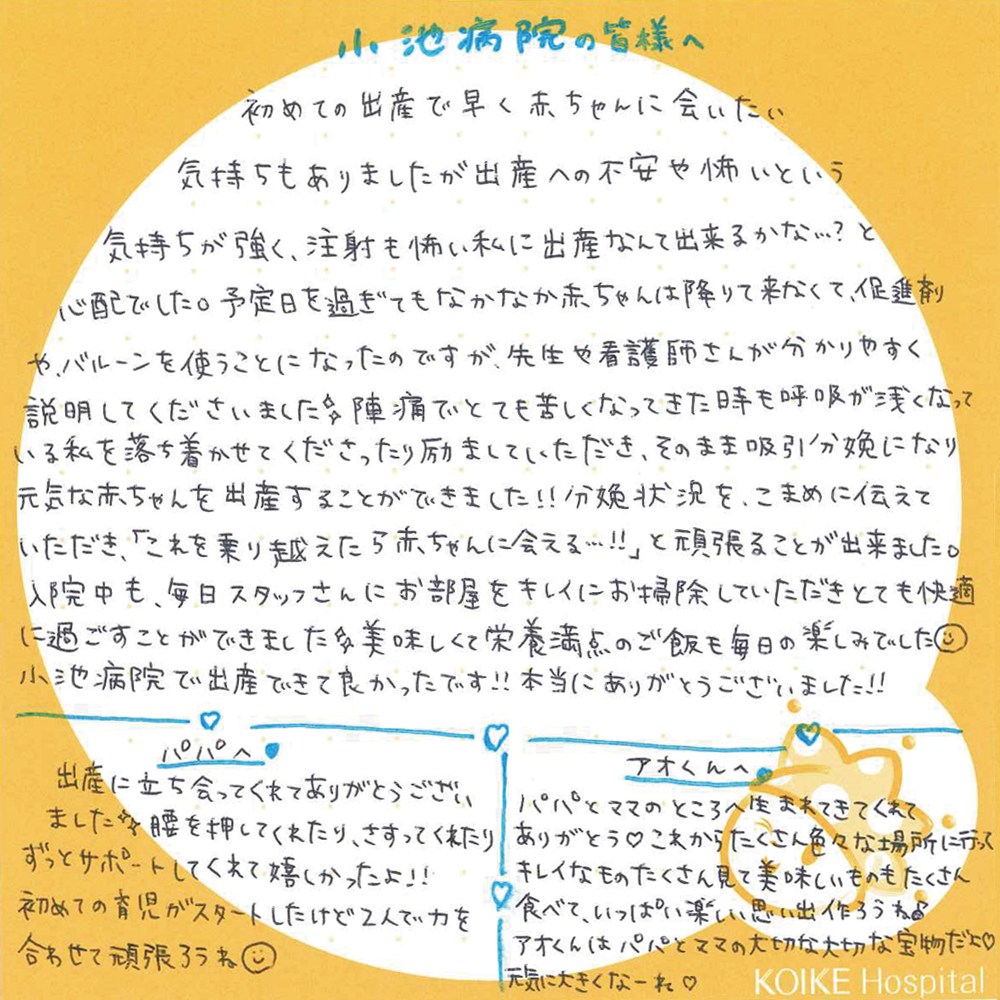 小池病院の皆様へ
初めての出産で早く赤ちゃんに会いたい
気持ちもありましたが出産への不安や怖いという
気持ちが強く、注射も怖い私に出産なんて出来るかな…?と
心配でした。予定日を過ぎてもなかなか赤ちゃんは降りて来なくて、促進剤
や、バルーンを使うことになったのですが、先生や看護師さんが分かりやすく
説明してくださいました 陣痛でとても苦しくなってきた時も呼吸が浅くなって
いる私を落ち着かせてくださったり励ましていただき、そのまま吸引分娩になり
元気な赤ちゃんを出産することができました!!分娩状況を、こまめに伝えて
いただき、「これを乗り越えたら赤ちゃんに会える…!!」と頑張ることが出来ました。
入院中も、毎日スタッフさんにお部屋をキレイにお掃除していただきとても快適
に過ごすことができました 美味しくて栄養満点のご飯も毎日の楽しみでした☺
小池病院で出産できて良かったです!!本当にありがとうございました!!
パパへ
出産に立ち会ってくれてありがとうござい
ました 腰を押してくれたり、さすってくれたり
ずっとサポートしてくれて嬉しかったよ!!
初めての育児がスタートしたけど2人で力を
合わせて頑張ろうね☺
アオくんへ
パパとママのところへ生まれてきてくれて
ありがとう♡これからたくさん色々な場所に行って
キレイなものたくさん見て美味しいものもたくさん
食べて、いっぱい楽しい思い出作ろうね
アオくんはパパとママの大切な大切な宝物だよ♡
元気に大きくなーれ♡
KOIKE Hospital